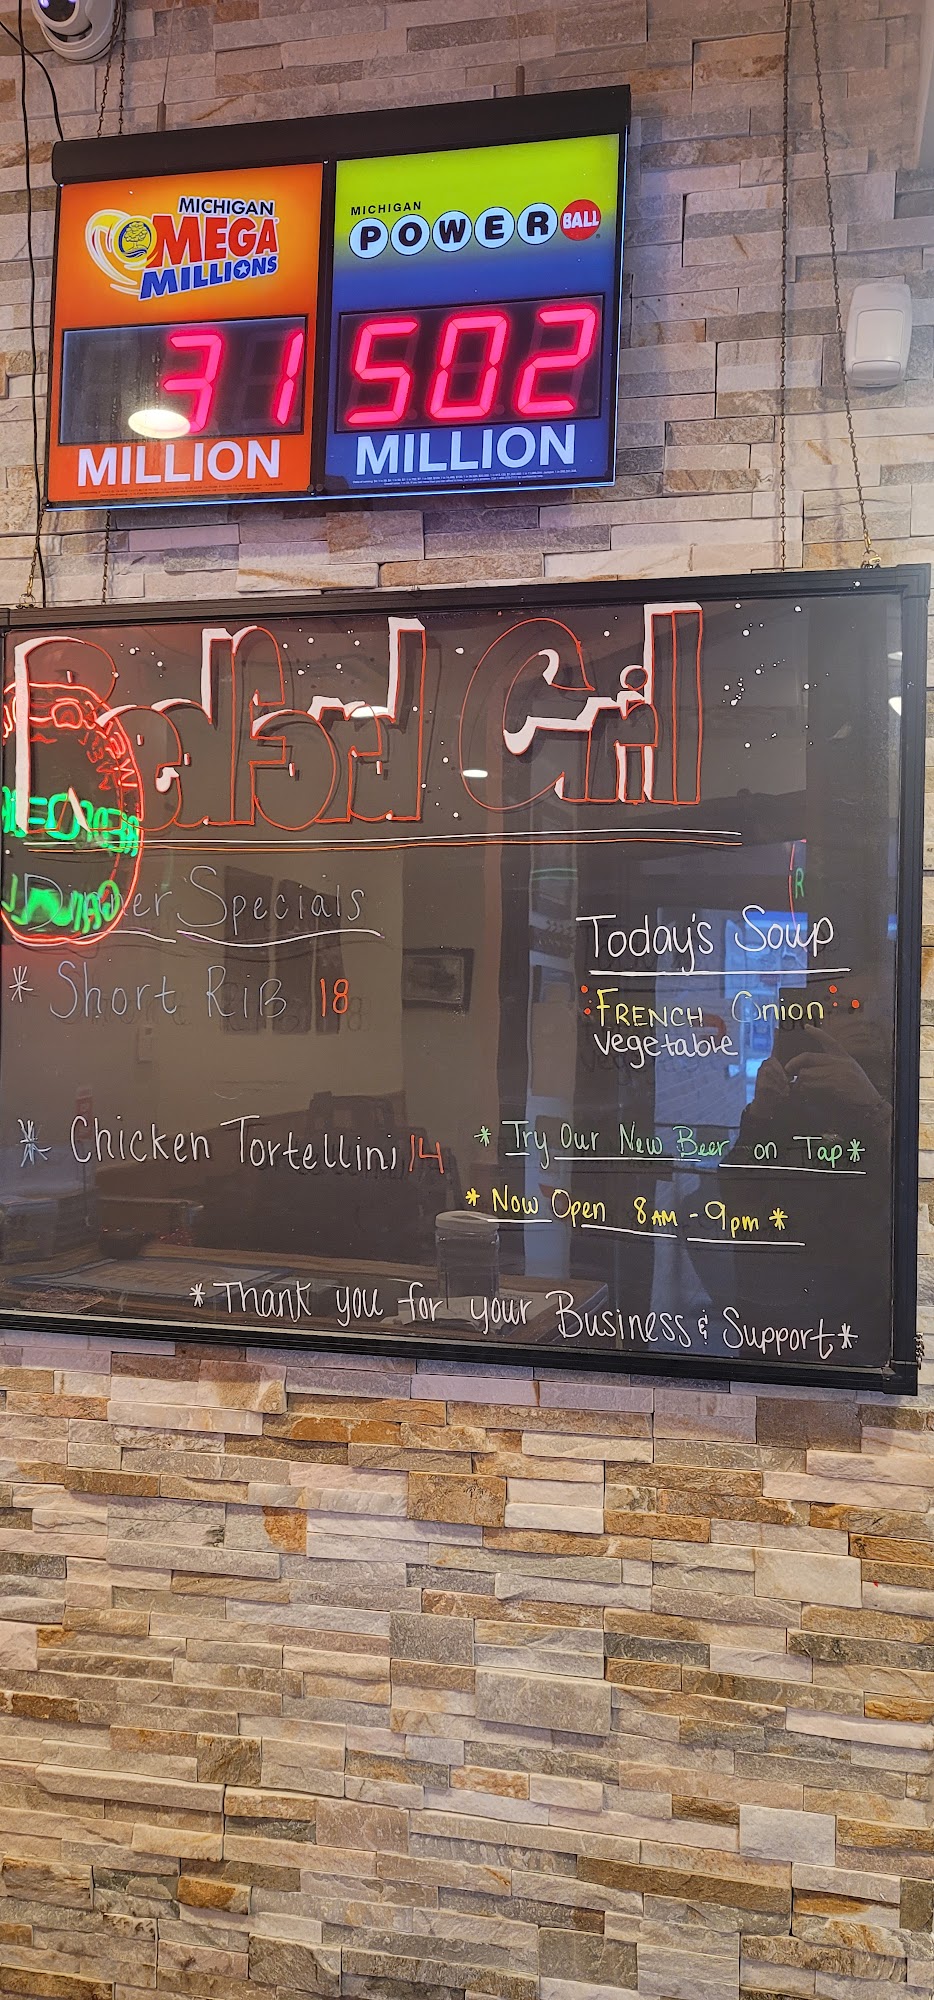 MICHIGAN
MEGA
MILLIONS
31
MILLION
MICHIGAN
POWER BALL
502
MILLION
Redford Grill
Dinner Specials
* Short RiB 18
* Chicken Tortellini 14
Today's Soup
FRENCH Onion
Vegetable
* Try Our New Beer on Tap *
* Now Open 8AM - 9pm *
* Thank you for your Business & Support *